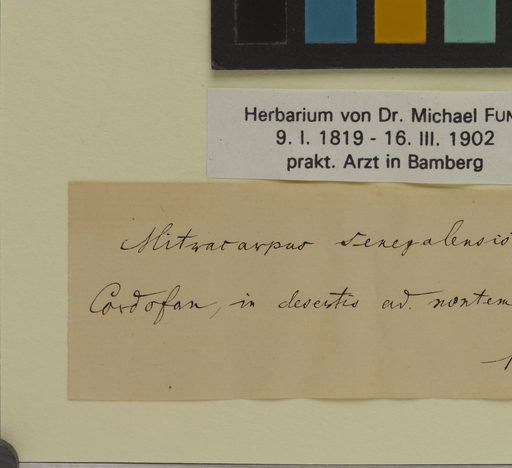 Herbarium von Dr. Michael FUN
9. I. 1819 - 16. III. 1902
prakt. Arzt in Bamberg
Mitracarpus senegalensis
Cordofan, in desertis ad. montem